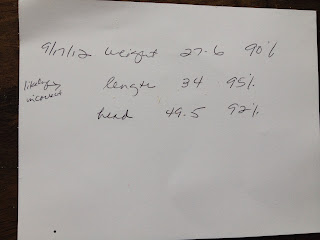 9/17/12 weight 27.6 90%
likely incorrect length 34 95%
head 49.5 92%